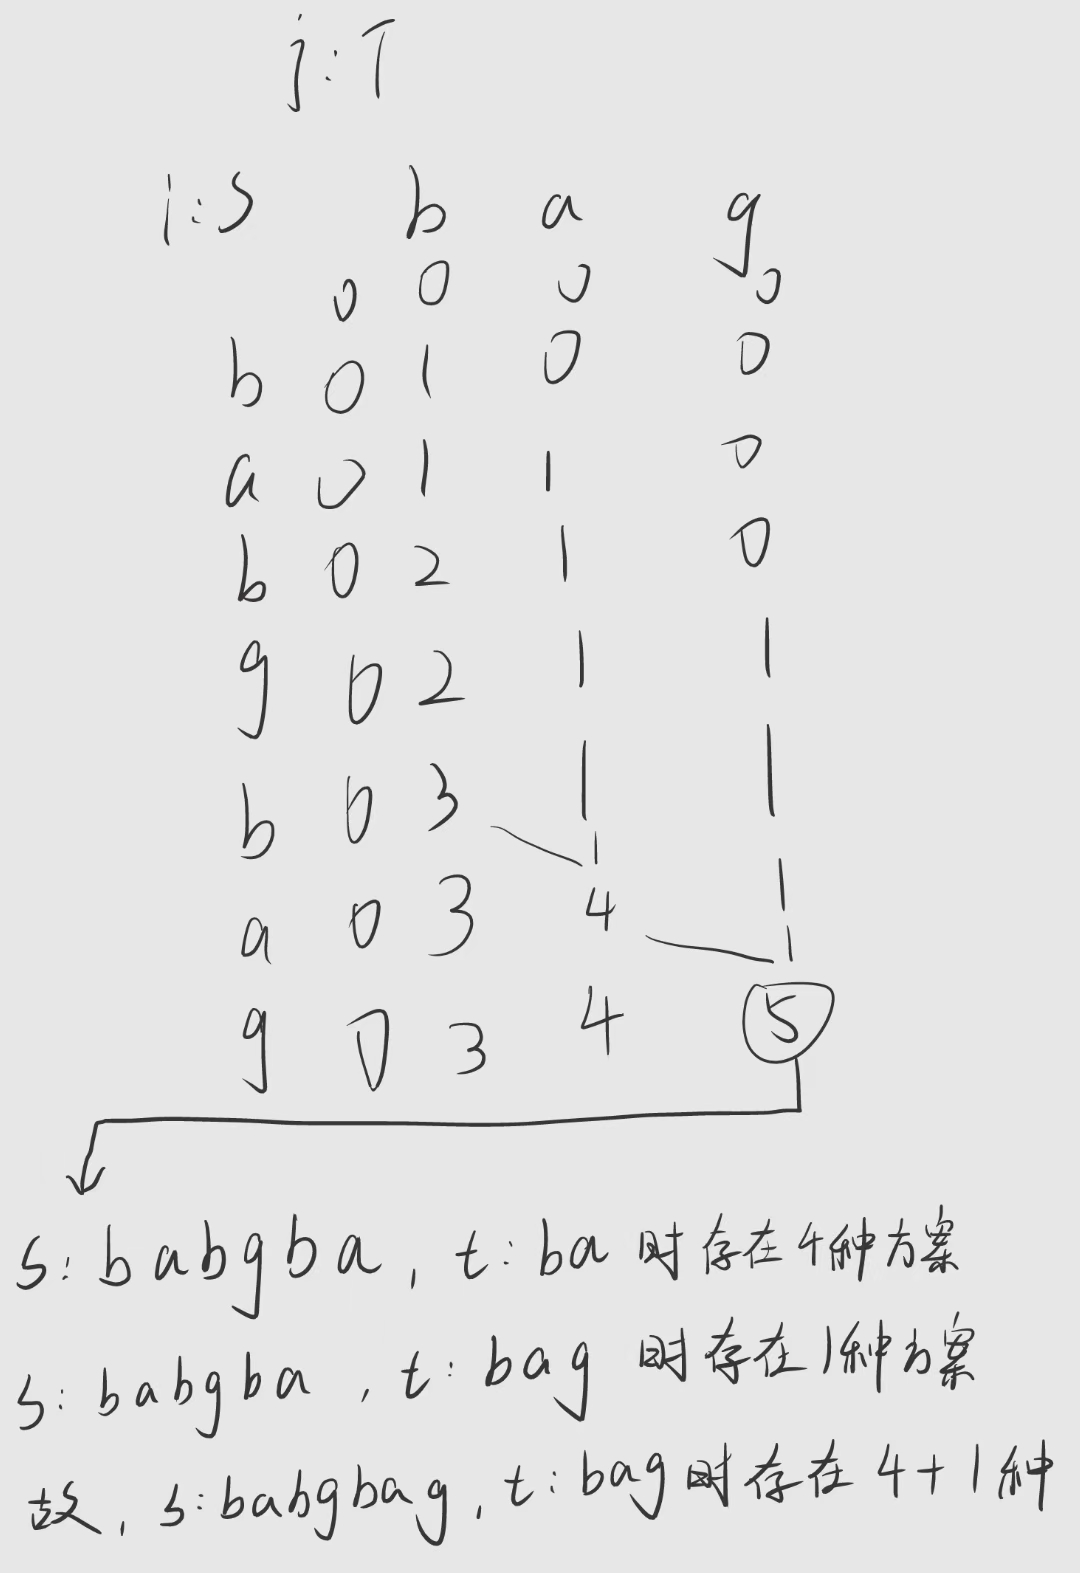 j:T
i:S b a g
0 0 0 0
b 0 1 0 0
a 0 1 1 0
b 0 2 1 0
g 0 2 1 1
b 0 3 1 1
1
a 0 3 4 1
1
g 0 3 4 5
s: babgba, t: ba 时存在4种方案
s: babgba, t: bag 时存在1种方案
故, s: babgbag, t: bag 时存在 4+1种